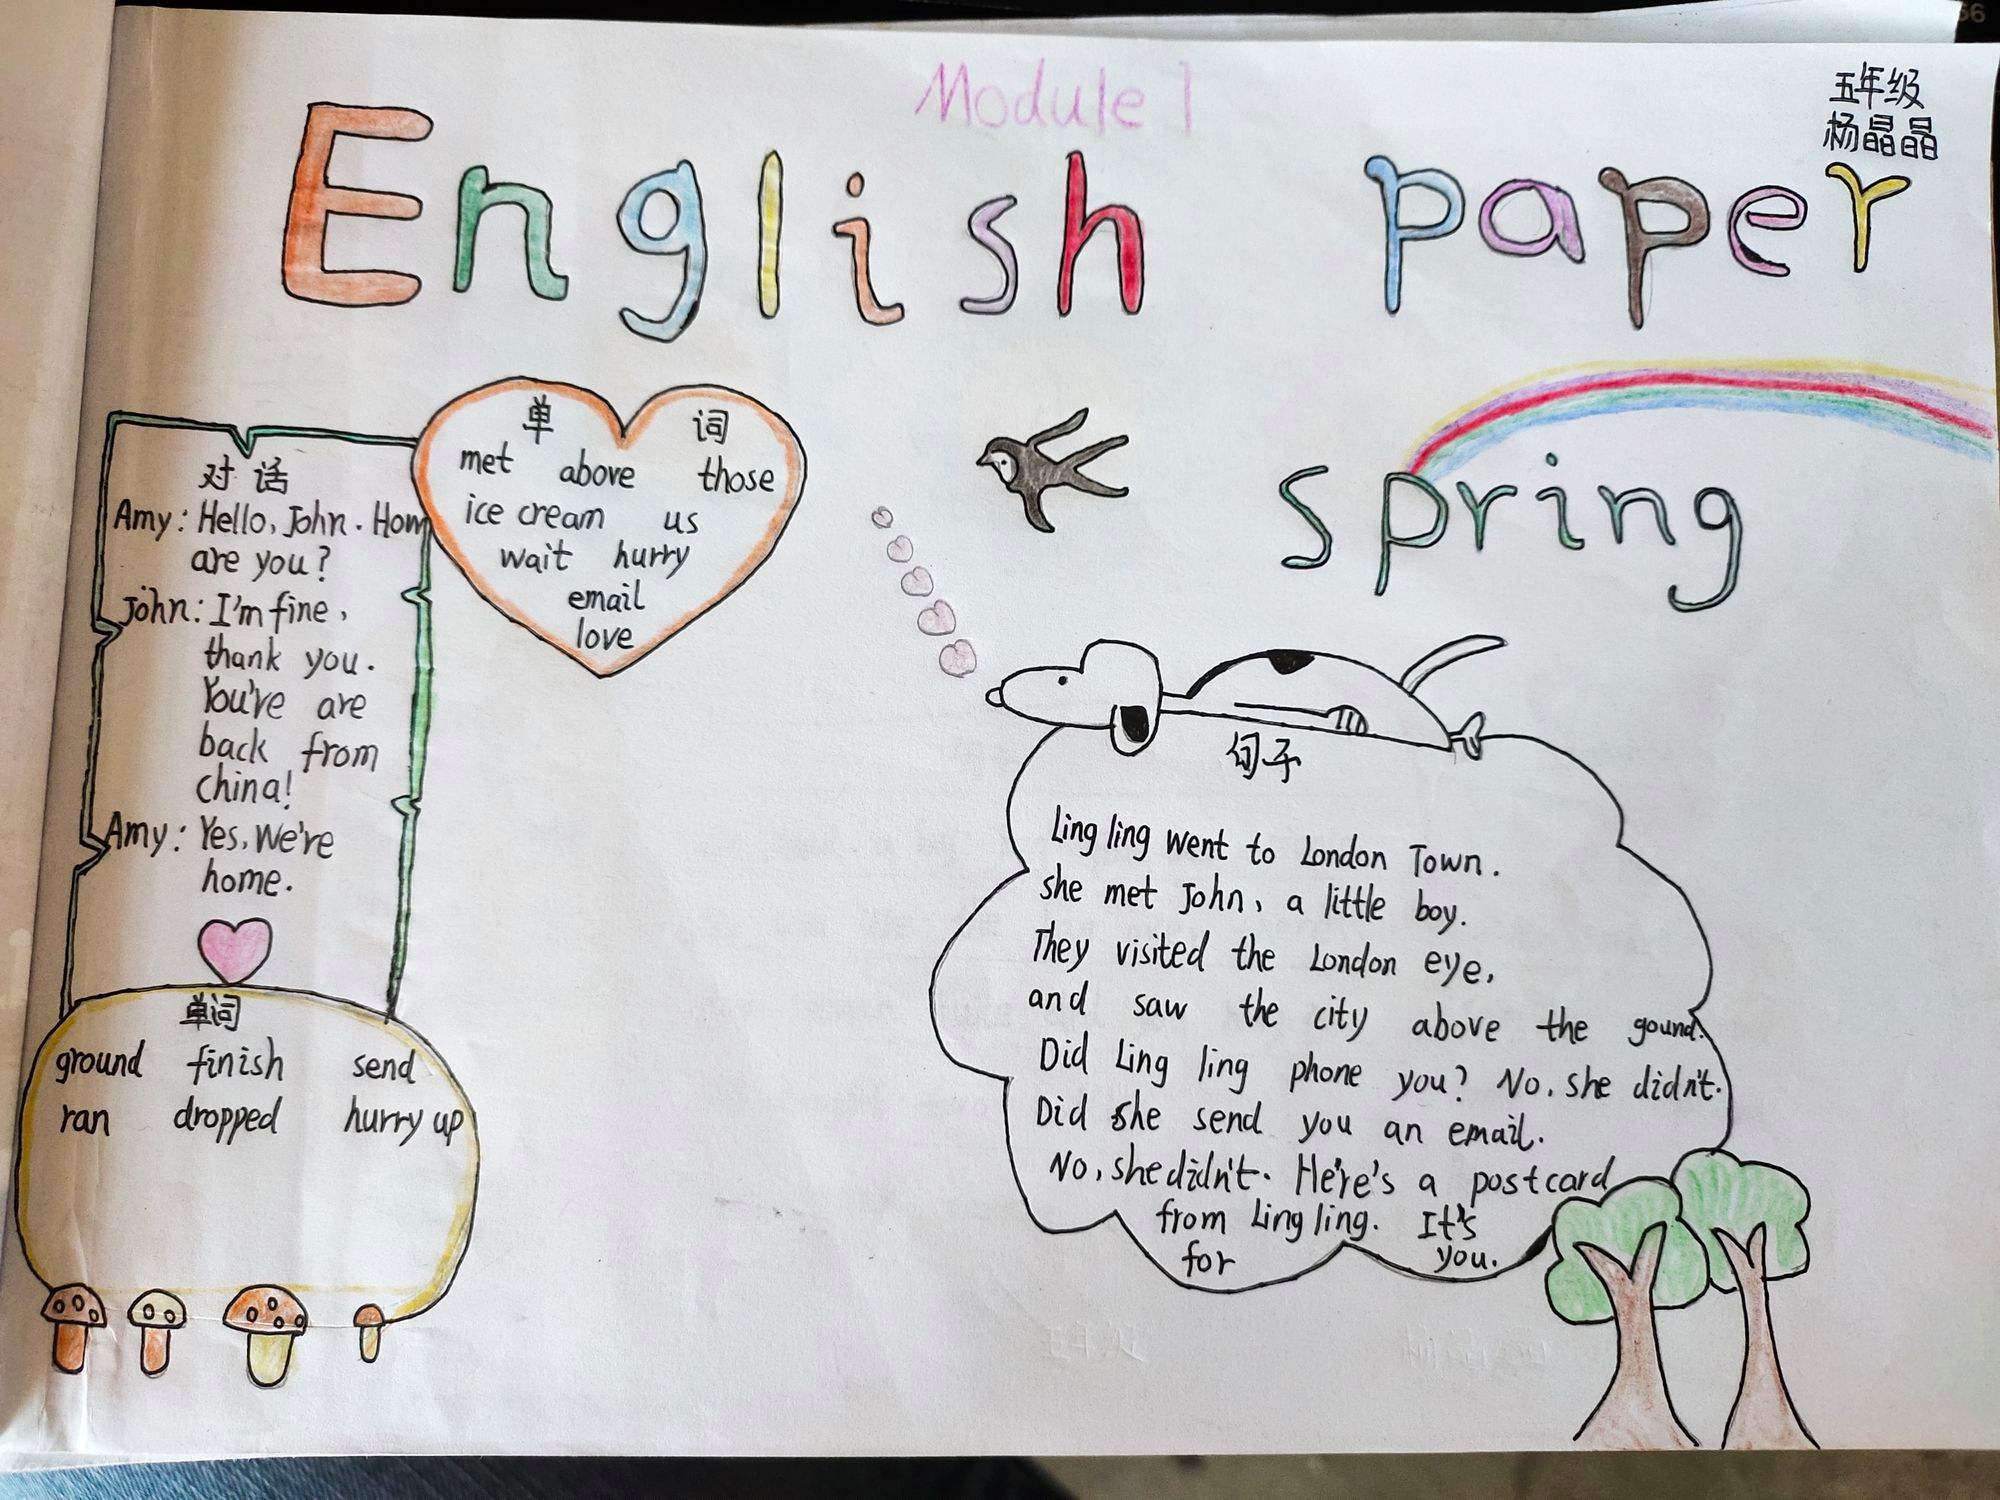 Module 1
五年级
杨晶晶
English paper
spring
对话
Amy: Hello, John. How
are you?
John: I'm fine,
thank you.
You've are
back from
china!
Amy: Yes, We're
home.
单词
met above those
ice cream us
wait hurry
email
love
单词
ground finish send
ran dropped hurry up
句子
Ling ling went to London Town.
she met John, a little boy.
They visited the London eye,
and saw the city above the gound.
Did Ling ling phone you? No, she didn't.
Did she send you an email.
No, she didn't. Here's a postcard
from Ling ling. It's
for you.